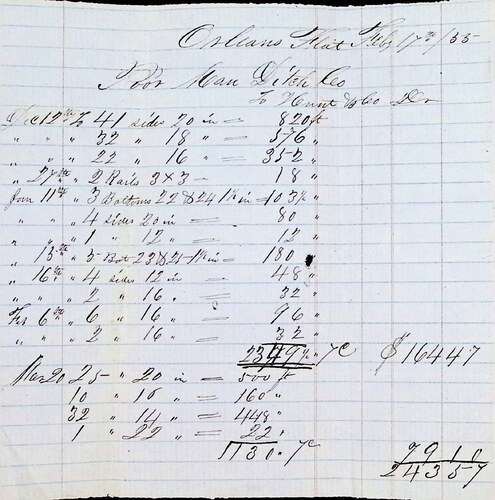 Orleans Flat Feby 17th /55
Poor Man Ditch Co
To Hunt & Co Dr
Dc 12th To 41 sides 20 in = 820 ft
" " " 32 " 18 " = 576 "
" " " 22 " 16 " = 352 "
" 27th " 2 Rails 3x3 - 18 "
Jan 11th " 3 Bottoms 22 & 24 1½ in = 103½ "
" " " 4 sides 20 in = 80 "
" " " 1 " 12 " = 12 "
" 15th " 5 Bot 23 & 24 1½ in = 180 "
" 16th " 4 sides 12 in = 48 "
" " " 2 " 16 " = 32 "
Feb 6th " 6 " 16 " = 96 "
" " " 2 " 16 = 32 "
2349½ " 7c $16447
Mar 20 25 " 20 in = 500 ft
10 " 16 " = 160 "
32 " 14 " = 448 "
1 " 22 " = 22 "
1130 " 7c 7910
24357